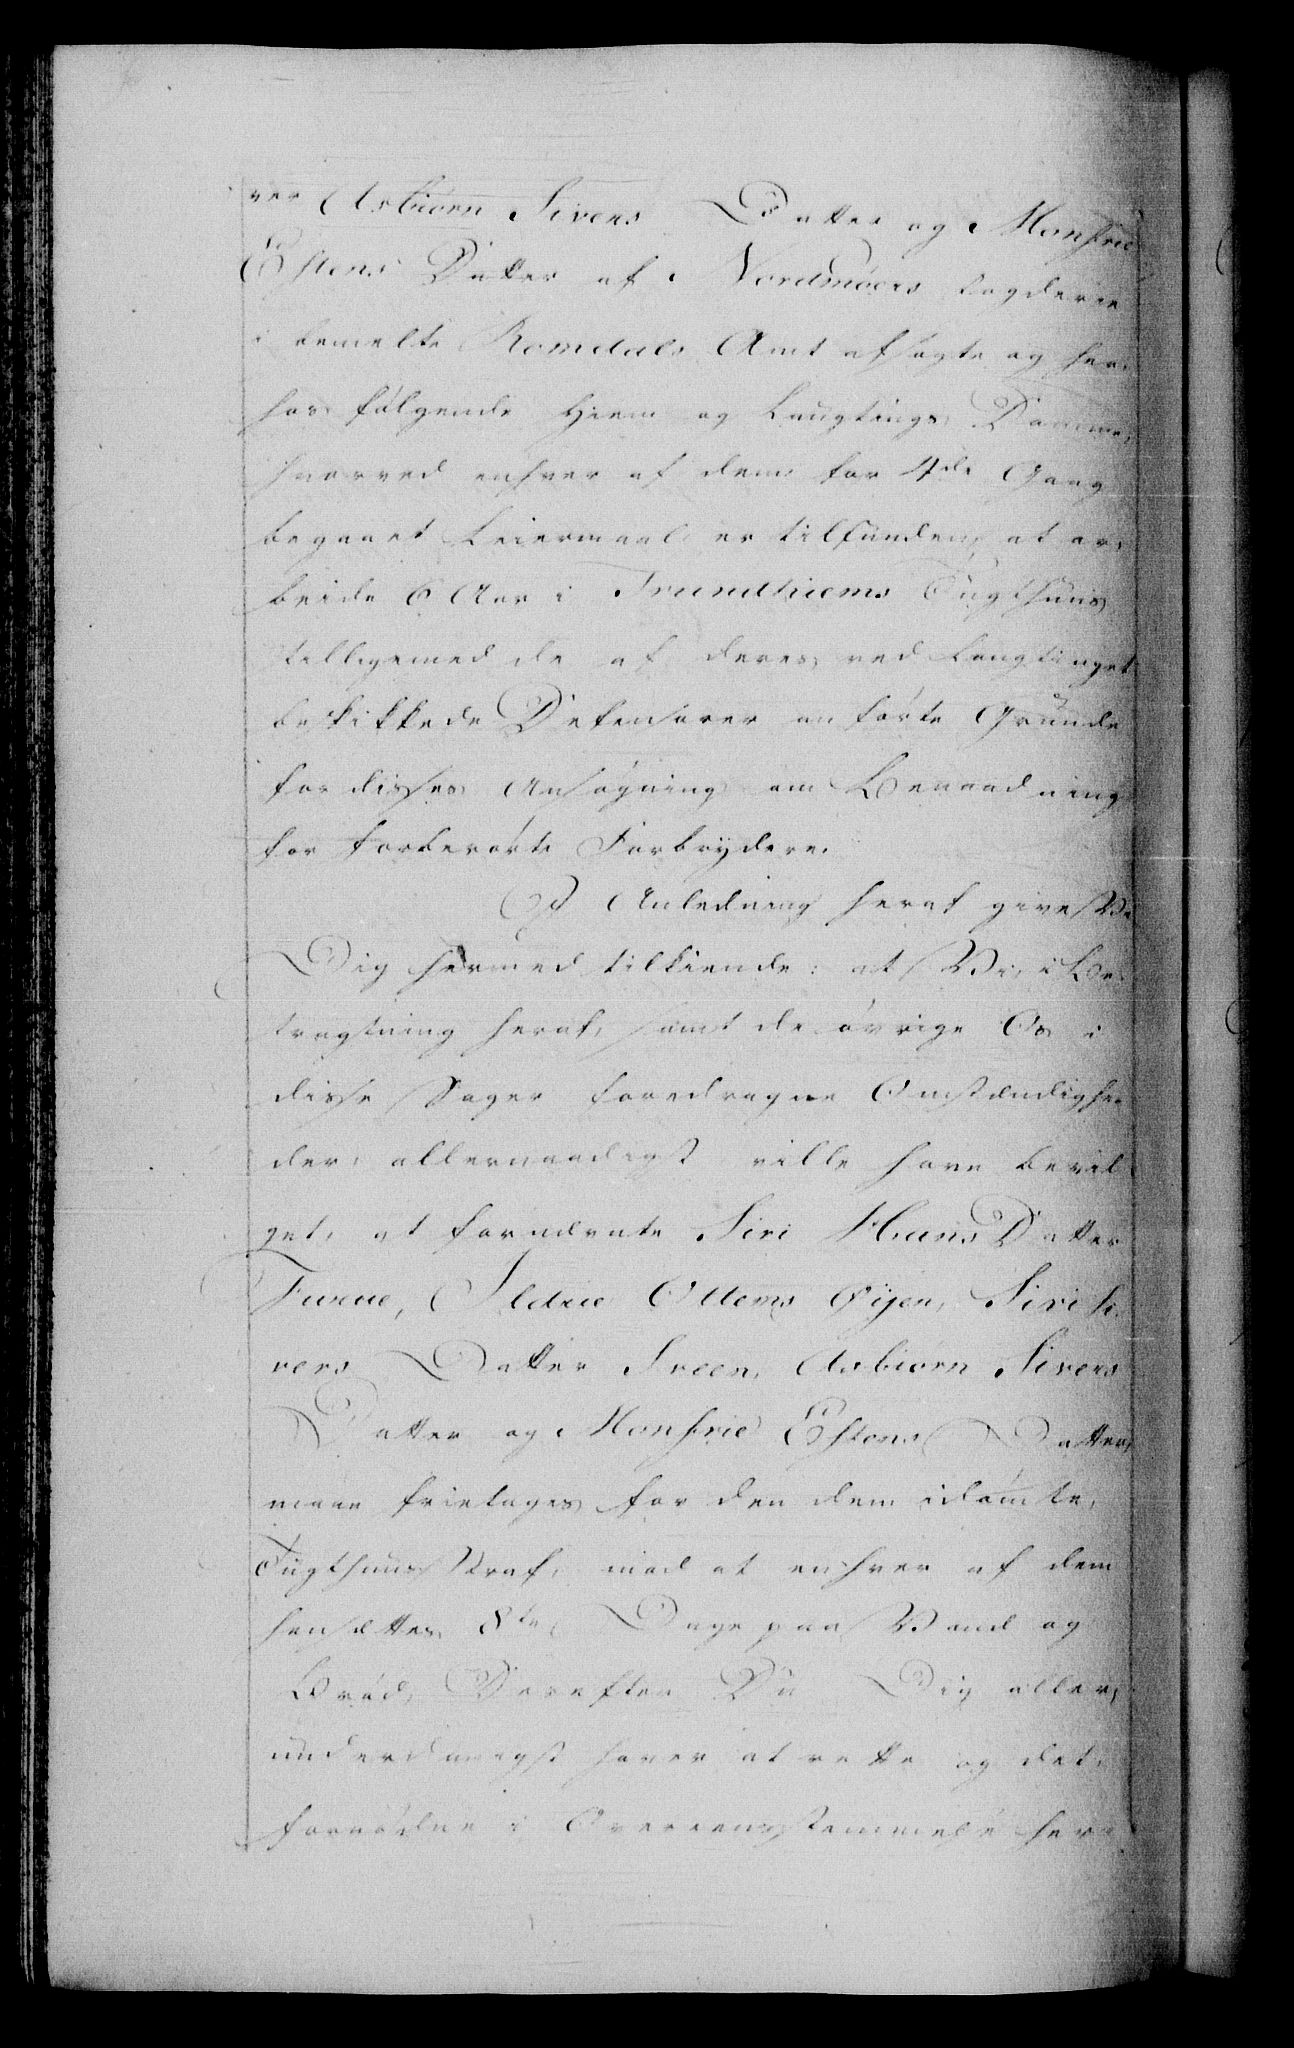 ver Asbiørn Sivers Datter og Monfrie
Estens Datter af Nordmøers Fogderie
i bemelte Romdals Amt afsagte og her,
hos følgende Hiem og Laugtings Domme,
hvorved enhver af dem for 4de Gang
begaaet Leiermaal er tilfunden, at ar,
beide 6 Aar i Trundhiems Tugthuus
tilligemed de af deres ved Laugtinget
beskikkede Defensorer anførte Grunde
for disses Ansøgning om Benaadning
for forberørte Forbrydere.
I Anledning heraf give Vi
Dig hermed tilkiende: at Vi, i Be,
tragtning heraf, samt de øvrige Os i
disse Sager foredragne Omstændighe,
der, allernaadigst ville have bevil,
get, at fornævnte Siri Hans Datter
Furue, Ildrie Ottems Øijen, Siri Si,
vers Datter Sveen, Asbiørn Sivers
Datter og Monfrie Estens Datter,
maae frietages for den dem idømte,
Tugthuus Straf, mod at enhver af dem
hensættes 8te Dage paa Vand og
Brød, Derefter Du Dig aller,
underdanigst haver at rette og det,
fornødne i Overeensstemmelse her,